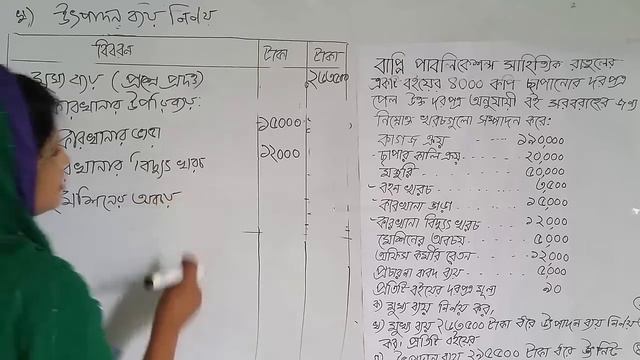 খ) উৎপাদন ব্যয় নির্নয়
বিবরন টাকা টাকা
মুখ্য ব্যয় (প্রশ্নে প্রদত্ত) ২৫৭৫০০
কারখানার উপরিব্যয়:
কারখানার ভাড়া ১৫০০০
কারখানার বিদ্যুৎ খরচ ১২০০০
মেশিনের অবচয়
বাপ্পি পাবলিকেশন্স সাহিত্যিক রাহুলের
একটি বইয়ের ৪০০০ কপি ছাপানোর দরপত্র
পেল উক্ত দরপত্র অনুযায়ী বই সরবরাহের
নিম্নোক্ত খরচগুলো সম্পাদন করে:
কাগজ ক্রয় ১৯০,০০০
ছাপার কালি ক্রয় ২০,০০০
মজুরি ৫০,০০০
বহন খরচ ৭৫০০
কারখানা ভাড়া ১৫,০০০
কারখানা বিদ্যুৎ খরচ ১২,০০০
মেশিনের অবচয় ৫,০০০
অফিস কর্মীর বেতন ১২,০০০
প্রচারনা বাবদ ব্যয় ৫,০০০
প্রতিটি বইয়ের দরপত্র মূল্য ৯০
ক) মুখ্য ব্যয় নির্নয় কর,
খ) মুখ্য ব্যয় ২৫৭৫০০ টাকা ধরে উৎপাদন ব্যয় নির্নয়
কর, প্রতিটি বইয়ের
উৎপাদন ব্যয় ২৯৫৫০০ টাকা ধরে